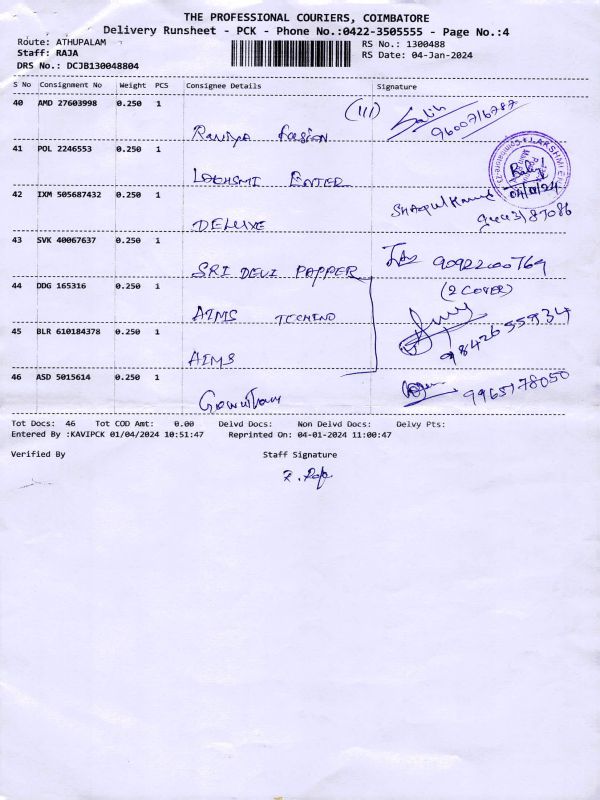 THE PROFESSIONAL COURIERS, COIMBATORE
Delivery Runsheet - PCK - Phone No.:0422-3505555 - Page No.:4
Route: ATHUPALAM
RS No.: 1300488
Staff: RAJA
RS Date: 04-Jan-2024
DRS No.: DCJB130048804
S No Consignment No Weight PCS Consignee Details Signature
40 AMD 27603998 0.250 1
(111)
9600716787
41 POL 2246553 0.250 1
LAKHSMI ENTER
42 IXM 505687432 0.250 1
04/01/24
DELUXE
43 SVK 40067637 0.250 1
SRI DEVI PAPPER
9092200769
44 DDG 165316 0.250 1
(2 COVER)
AIMS
45 BLR 610184378 0.250 1
9842655934
AIMS
46 ASD 5015614 0.250 1
9965178050
Gowtham
Tot Docs: 46 Tot COD Amt: 0.00 Delvd Docs: Non Delvd Docs: Delvy Pts:
Entered By :KAVIPCK 01/04/2024 10:51:47 Reprinted On: 04-01-2024 11:00:47
Verified By Staff Signature